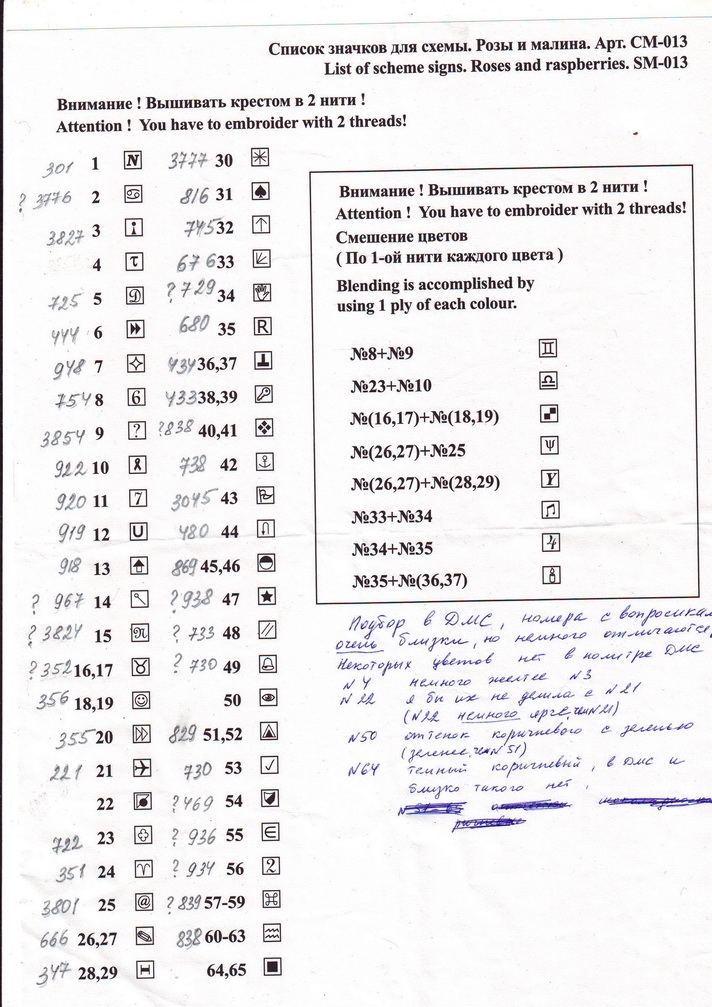 Список значков для схемы. Розы и малина. Арт. СМ-013
List of scheme signs. Roses and raspberries. SM-013
Внимание ! Вышивать крестом в 2 нити !
Attention ! You have to embroider with 2 threads!
301 1 N 3777 30
? 3776 2 816 31
3827 3 745 32
4 τ 676 33
725 5 D ? 729 34
444 6 680 35 R
948 7 434 36,37
754 8 6 433 38,39
3854 9 ? ? 838 40,41
922 10 738 42
920 11 7 3045 43
919 12 U 480 44
918 13 869 45,46
? 967 14 ? 938 47
? 3824 15 ? 733 48
? 352 16,17 ? 730 49
356 18,19 50
355 20 829 51,52
221 21 730 53
22 ? 469 54
722 23 ? 936 55 ∈
351 24 ? 934 56 2
3801 25 @ ? 839 57-59
666 26,27 838 60-63
347 28,29 H 64,65
Внимание ! Вышивать крестом в 2 нити !
Attention ! You have to embroider with 2 threads!
Смешение цветов
( По 1-ой нити каждого цвета )
Blending is accomplished by
using 1 ply of each colour.
№8+№9
№23+№10
№(16,17)+№(18,19)
№(26,27)+№25 Ψ
№(26,27)+№(28,29) Y
№33+№34
№34+№35
№35+№(36,37)
Подбор в ДМС, номера с вопросикам
очень близки, но немного отличаются,
Некоторых цветов нет в политре ДМС
N 4 немного желтее N 3
N 22 я бы их не делила с N 21
(N22 немного ярче, чем N21)
N50 оттенок коричневого с зеленью
(зеленее, чем N 51)
N64 темный коричневый, в ДМС и
близко такого нет.